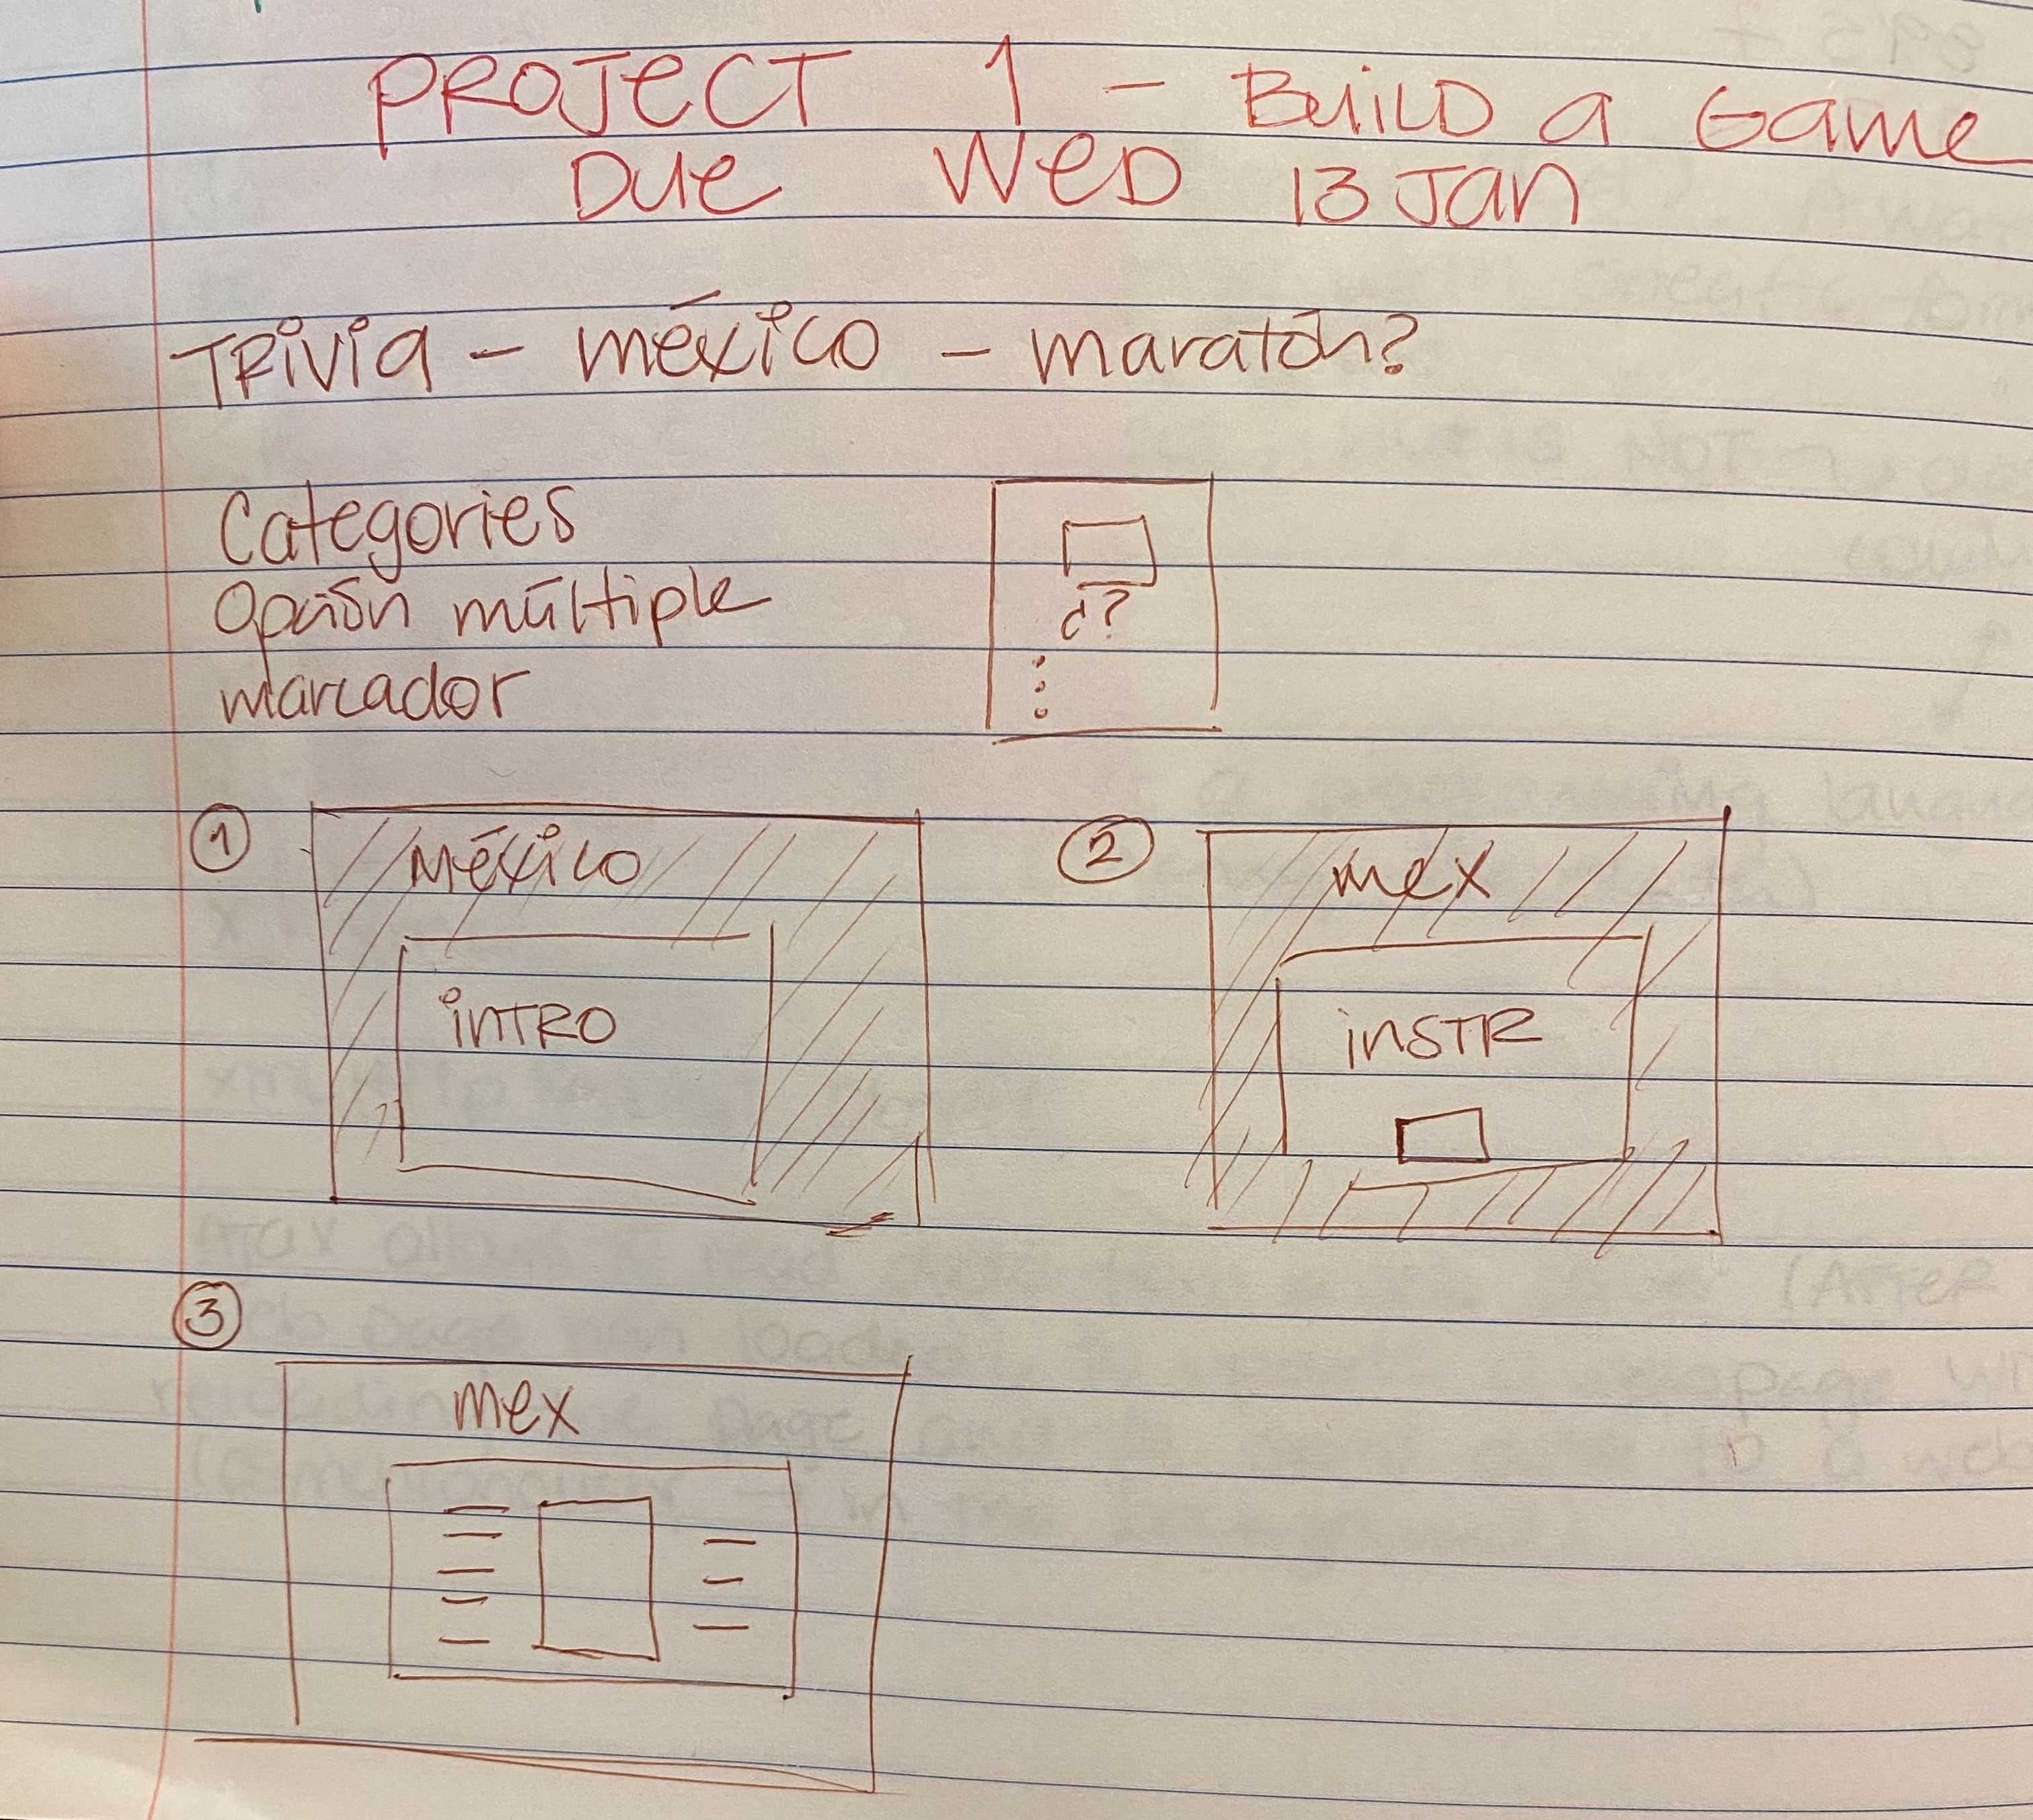 PROJECT 1 - BUILD a Game
DUE WED 13 Jan
TRIVIA - méxico - maratón?
Categories
Opción múltiple
marcador
¿?
1 México
intro
2 mex
instr
3
mex